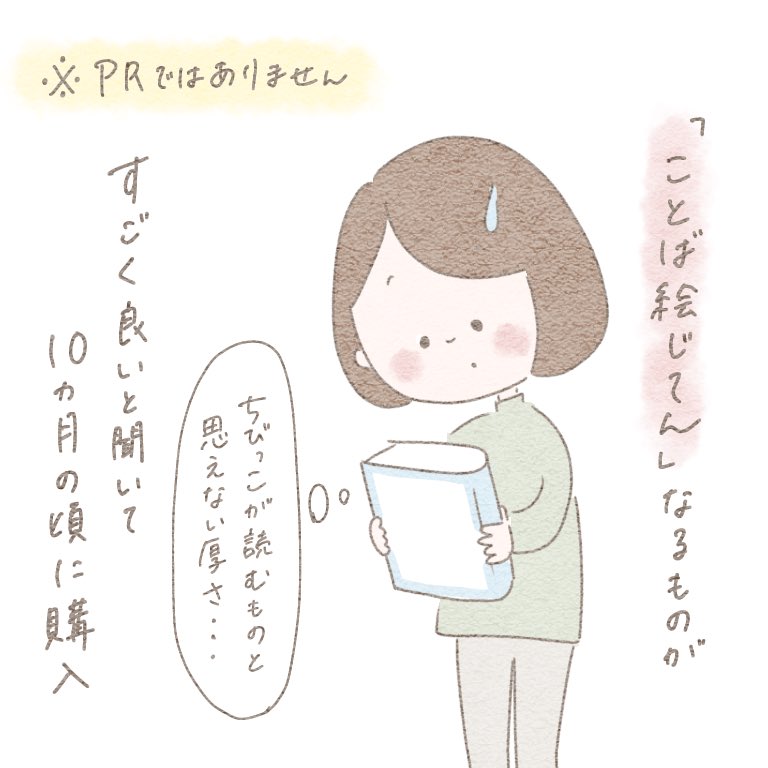 ※PRではありません
「ことば絵じてん」なるものが
すごく良いと聞いて
10ヵ月の頃に購入
ちびっこが読むものと
思えない厚さ・・・